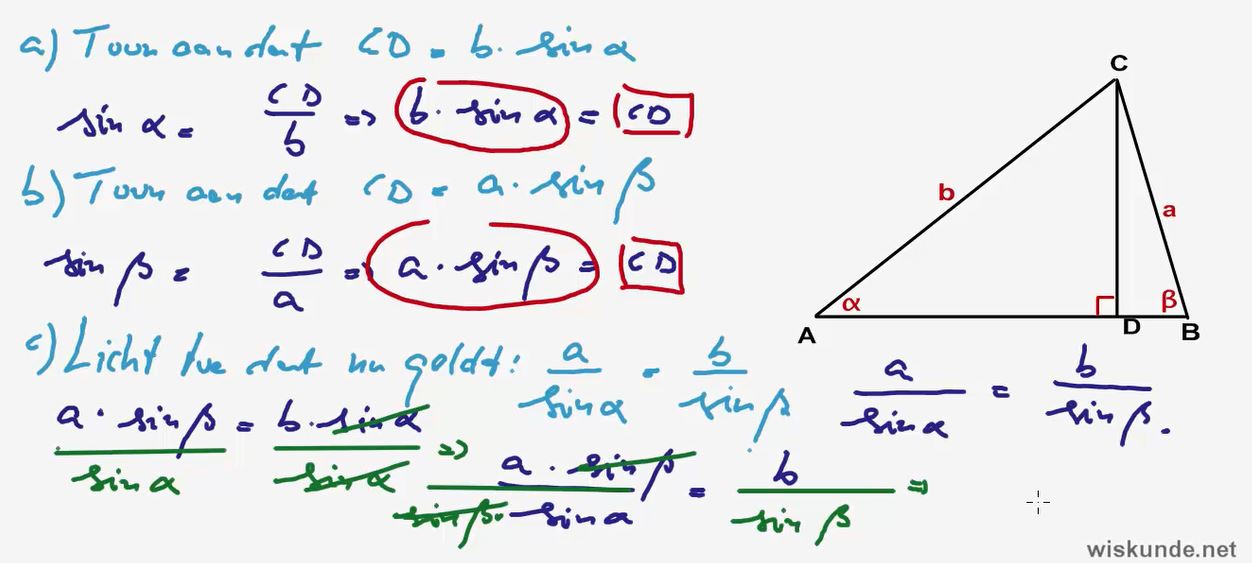 a) Toon aan dat CD = b · sin α
sin α = CD/b => b · sin α = CD
b) Toon aan dat CD = a · sin β
sin β = CD/a => a · sin β = CD
c) Licht toe dat nu geldt: a/sin α = b/sin β
a · sin β/sin α = b · sin α/sin α => a · sin β/sin β · sin α = b/sin β =>
a/sin α = b/sin β.
C
b
a
α
β
A
D
B
wiskunde.net